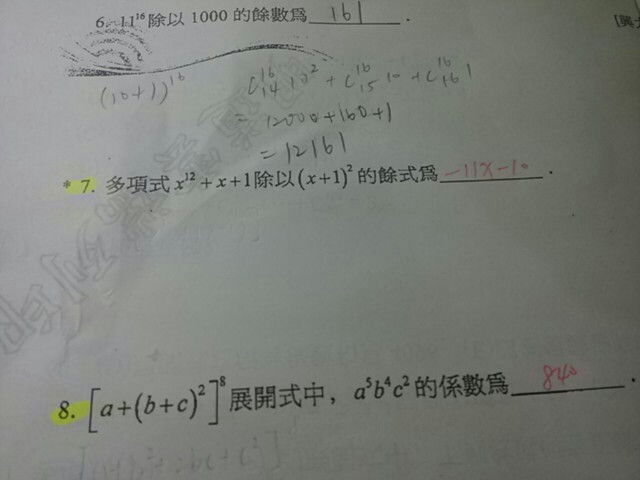 6. 11¹⁶除以 1000 的餘數為 161 .
(10+1)¹⁶ C¹⁶₁₄ 10² + C¹⁶₁₅ 10 + C¹⁶₁₆ 1
= 12000+160+1
= 12161
* 7. 多項式 x¹² + x + 1除以 (x+1)² 的餘式為 -11x-10 .
8. [a+(b+c)²]⁸ 展開式中，a⁵b⁴c² 的係數為 840 .